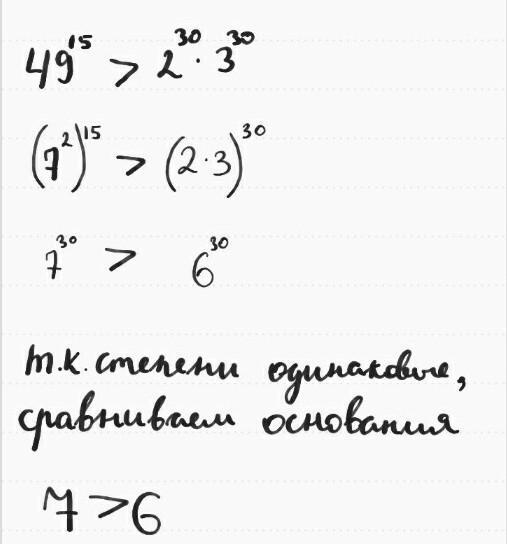 49¹⁵ > 2³⁰ · 3³⁰
(7²)¹⁵ > (2·3)³⁰
7³⁰ > 6³⁰
т.к. степени одинаковые,
сравниваем основания
7 > 6